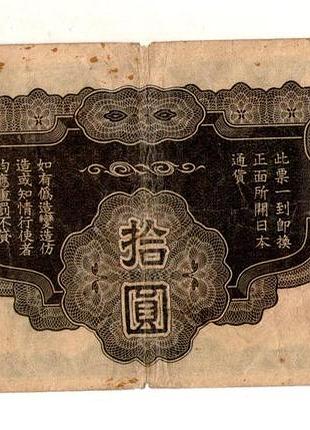 此票一到卽換
正面所開日本
通貨
拾
圓
如有僞造變造仿
造或知情行使者
均應重罰不貸